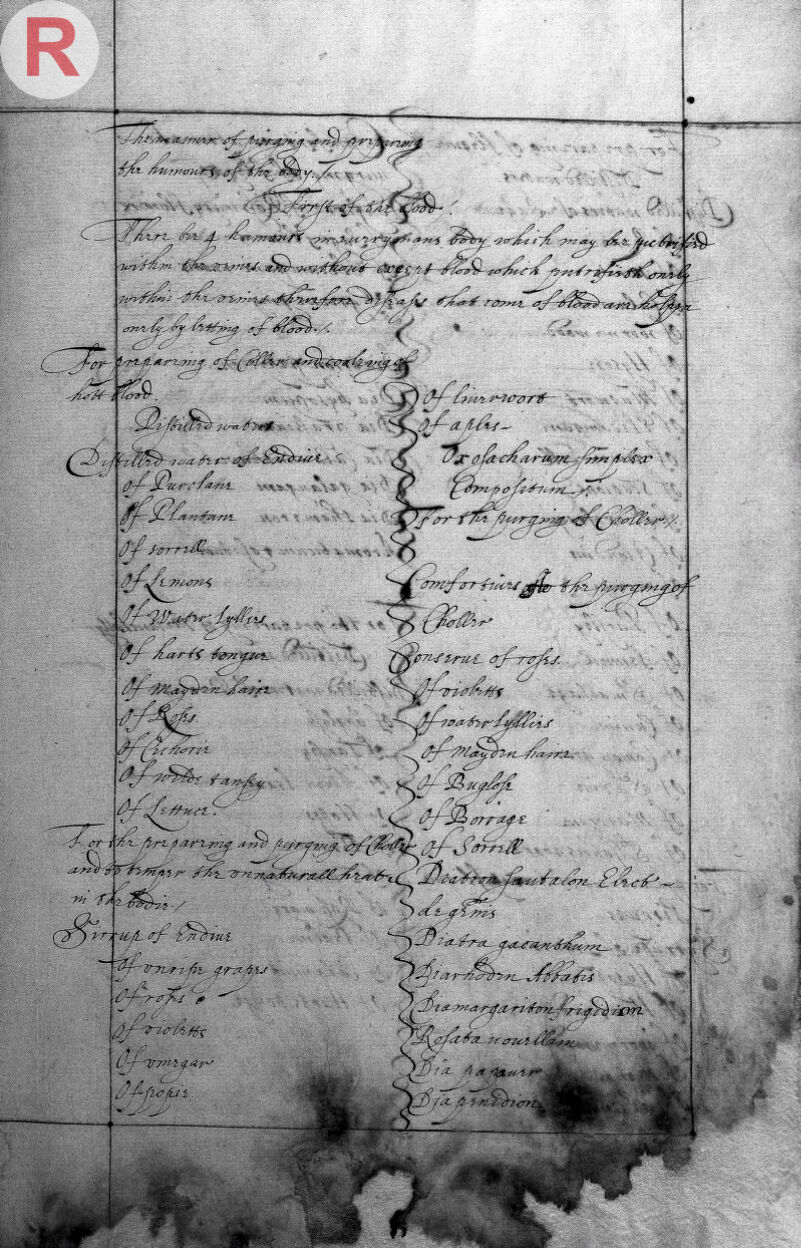 R
The manner of purging and preparing
the humours of the body ./.
First of the blood ./
There be 4 humours in euery mans body which may be putrified
within the veines and without except blood which putrifieth onely
within the veines therefore diseases that come of blood are holpen
onely by letting of blood ./.
For preparing of Coller and cooleing of
hott blood.
Distilled waters
Distilled water of Endiue
Of Purclane
Of Plantane
Of sorrell
Of Lemons
Of Water Lyllies
Of harts tongue
Of Mayden haire
Of Roses
Of Cichorie
Of wilde tansey
Of Lettuce.
For the prepareing and purging of Choller
and to temper the vnnaturall heate
in the bodie ./
Sirrup of Endiue
Of vnripe grapes
Of roses
Of violetts
Of vinegar
Of popie
Of liuerwort
Of aples
Oxosacharum simplex
Compositum ./.
For the purging of Choller ./.
Comfortiues the purging of
Choller
Conserue of roses
Of violetts
Of water lyllies
Of Mayden haire
Of Buglose
Of Borrage
Of Sorrell
Diatrion santalon Elect
de gems
Diatra gacanthum
Diarhoden Abbatis
Diamargariton frigidion
Rosata nouellam
Dia papauer
Dia penidion